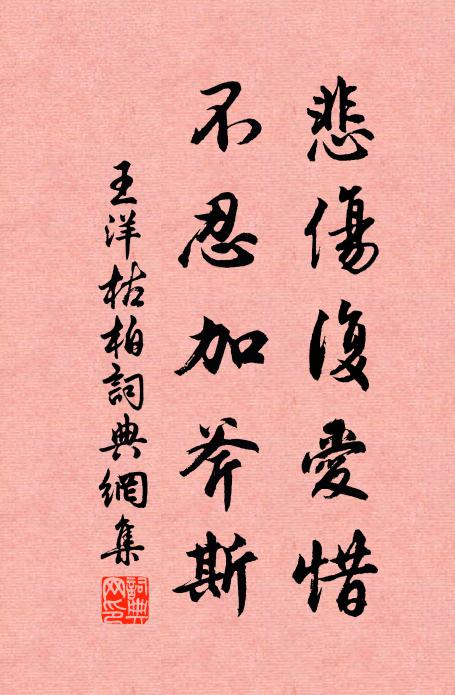 悲傷復愛惜
不忍加斧斯
王洋枯柏詞典網集
詞典
网印